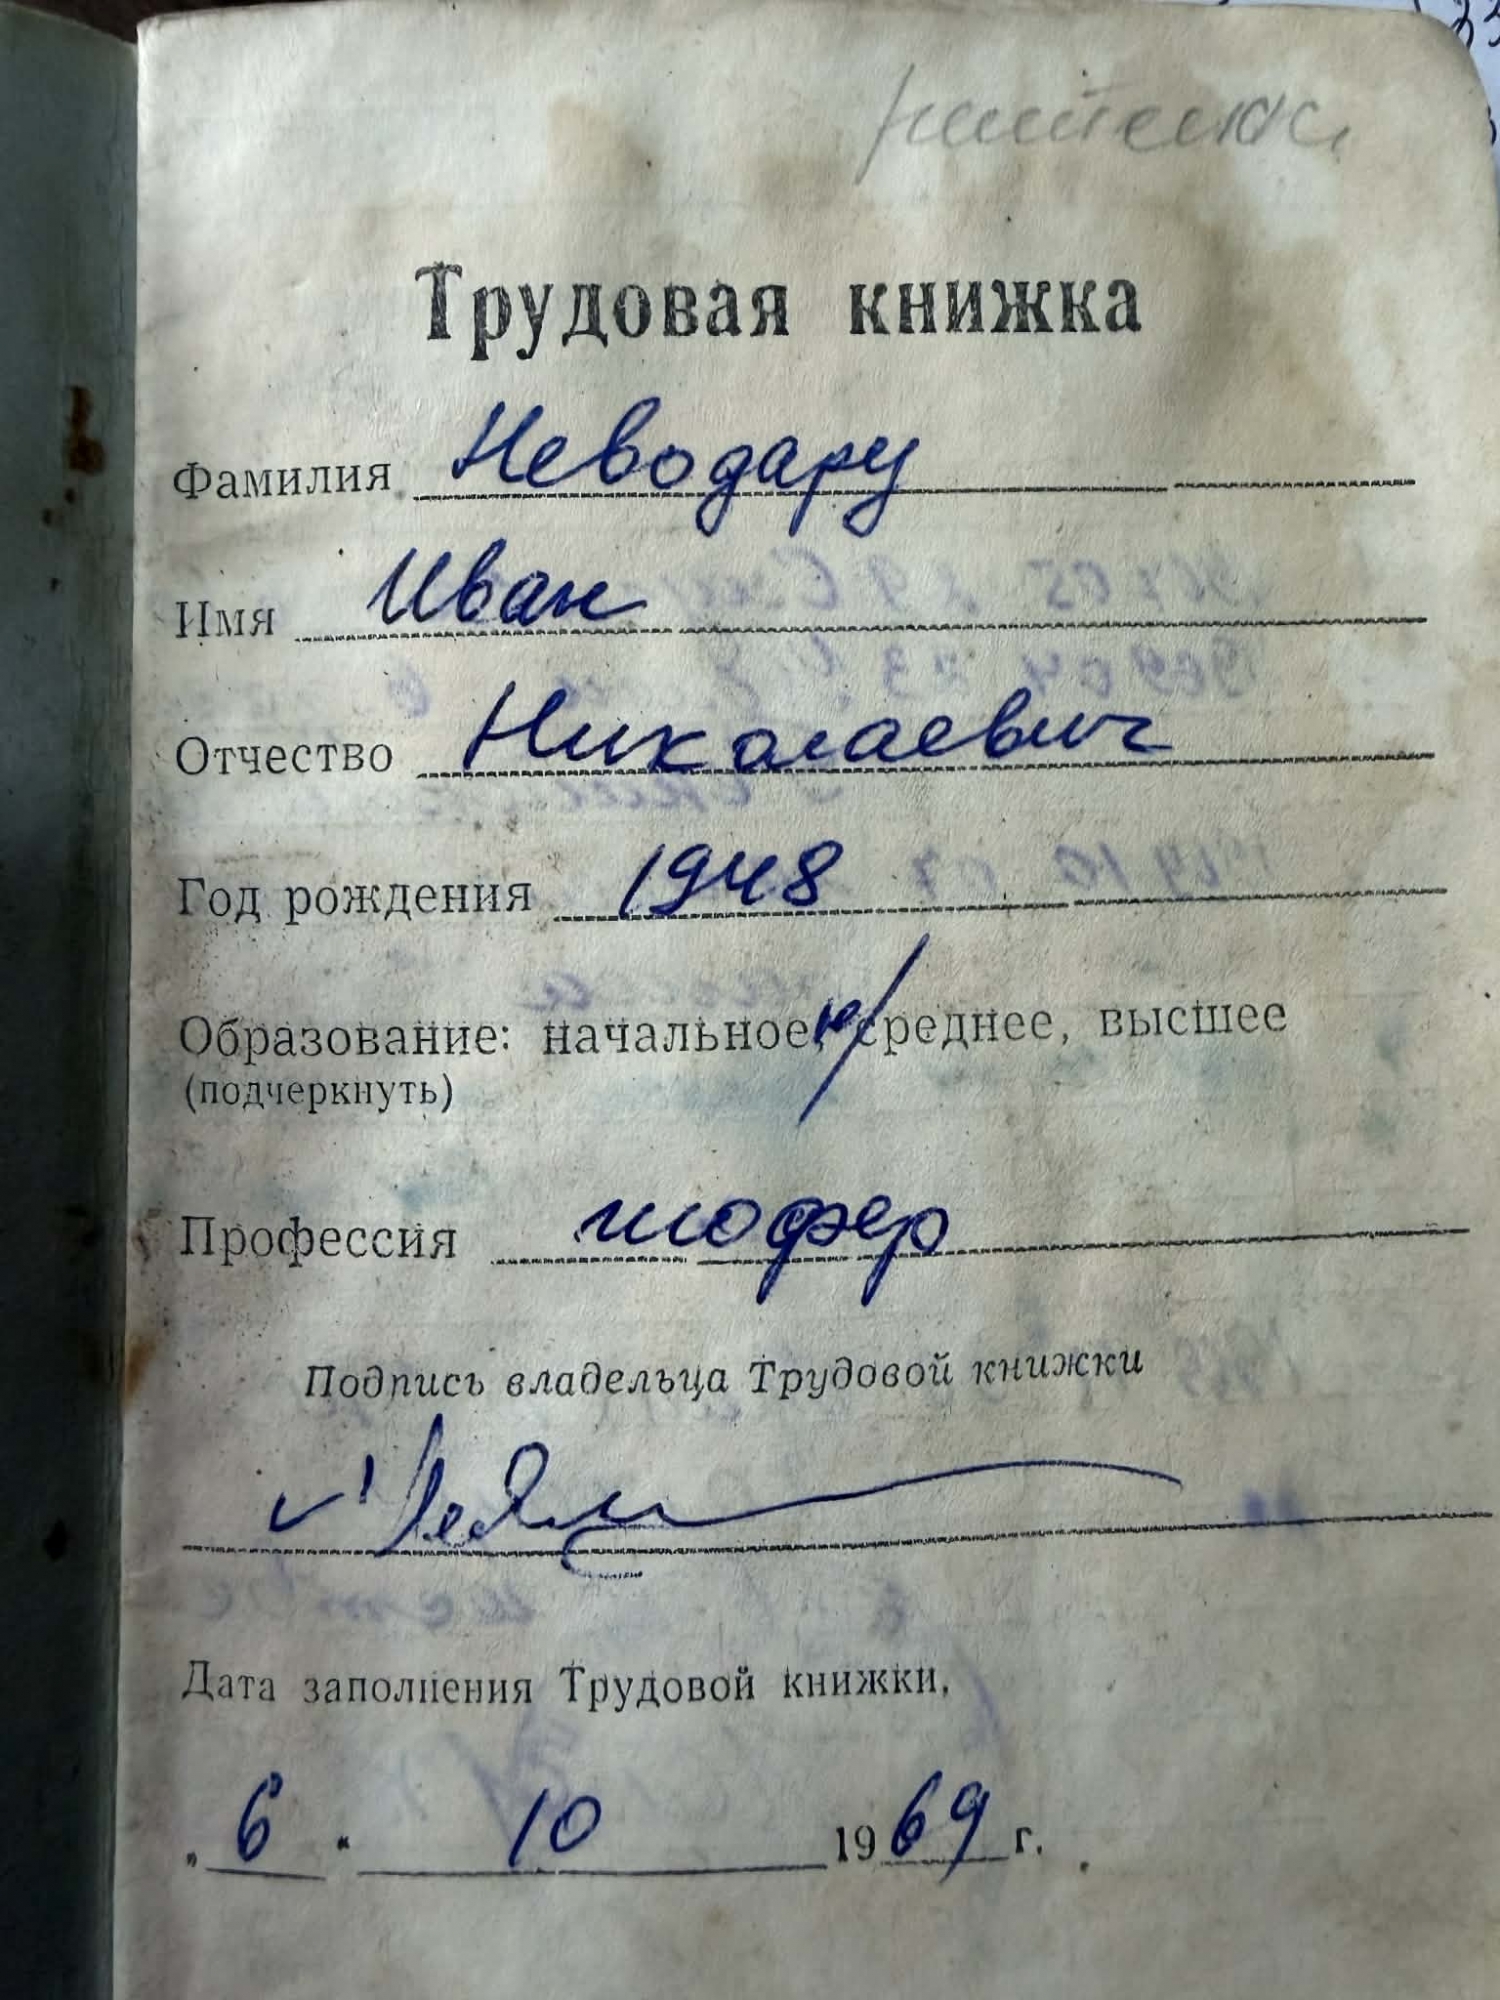 Трудовая книжка
Фамилия Неводару
Имя Иван
Отчество Николаевич
Год рождения 1948
Образование: начальное, н/среднее, высшее
(подчеркнуть)
Профессия шофер
Подпись владельца Трудовой книжки
Дата заполнения Трудовой книжки.
„ 6 “ 10 1969 г.